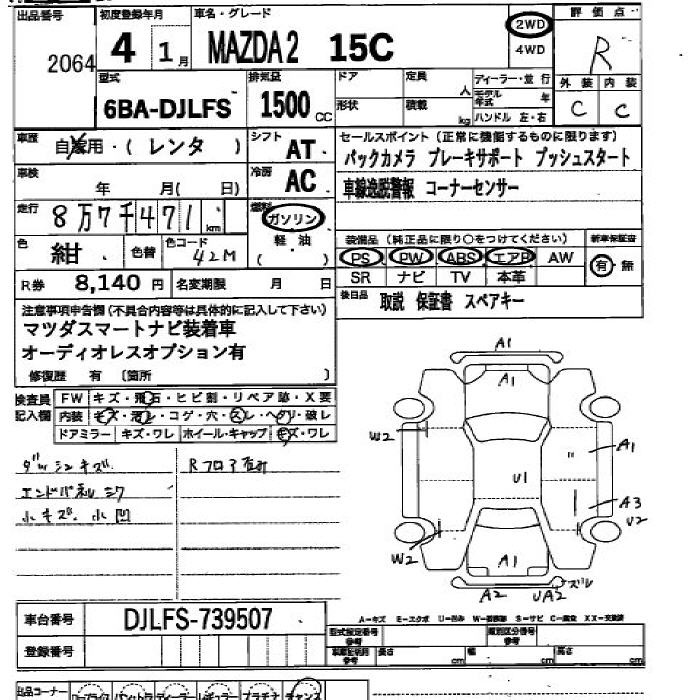 出品番号
2064
初度登録年月
4 1月
車名・グレード
MAZDA2 15C
2WD
4WD
評価点
R
外装 内装
C C
型式
6BA-DJLFS
排気量
1500 CC
ドア
定員
人
ディーラー・並行
モデル年式 年
形状
積載
kg
ハンドル 左・右
車歴
自家用・(レンタ )
シフト
AT
セールスポイント (正常に機能するものに限ります)
バックカメラ ブレーキサポート プッシュスタート
車線逸脱警報 コーナーセンサー
車検
年 月( 日)
冷房
AC
走行
8万7千471km
燃料
ガソリン
軽油
( )
色
紺
色替
色コード
42M
装備品 (純正品に限り○をつけてください)
新車保証書
PS PW ABS エアB AW
有・無
SR ナビ TV 本革
R券 8,140 円
名変期限 月 日
後日品 取説 保証書 スペアキー
注意事項申告欄 (不具合内容等は具体的に記入して下さい)
マツダスマートナビ装着車
オーディオレスオプション有
修復歴 有 〔箇所 〕
検査員
記入欄
FW キズ・飛石・ヒビ割・リペア跡・X要
内装 キズ・汚レ・コゲ・穴・スレ・ヘタリ・破レ
ドアミラー キズ・ワレ ホイール・キャップ キズ・ワレ
ダッシュキズ
エンドパネルシワ
小キズ、小凹
A1
A1
W2
A1
U1
"
A3
U2
W2
A1
A2
UA2
ズレ
車台番号
DJLFS-739507
登録番号
A=キズ E=エクボ U=凹み W=補修跡 S=サビ C=腐食 XX=交換済
型式指定番号
参考
類別区分番号
参考
長さ cm 幅 cm 高さ cm
出品コーナー